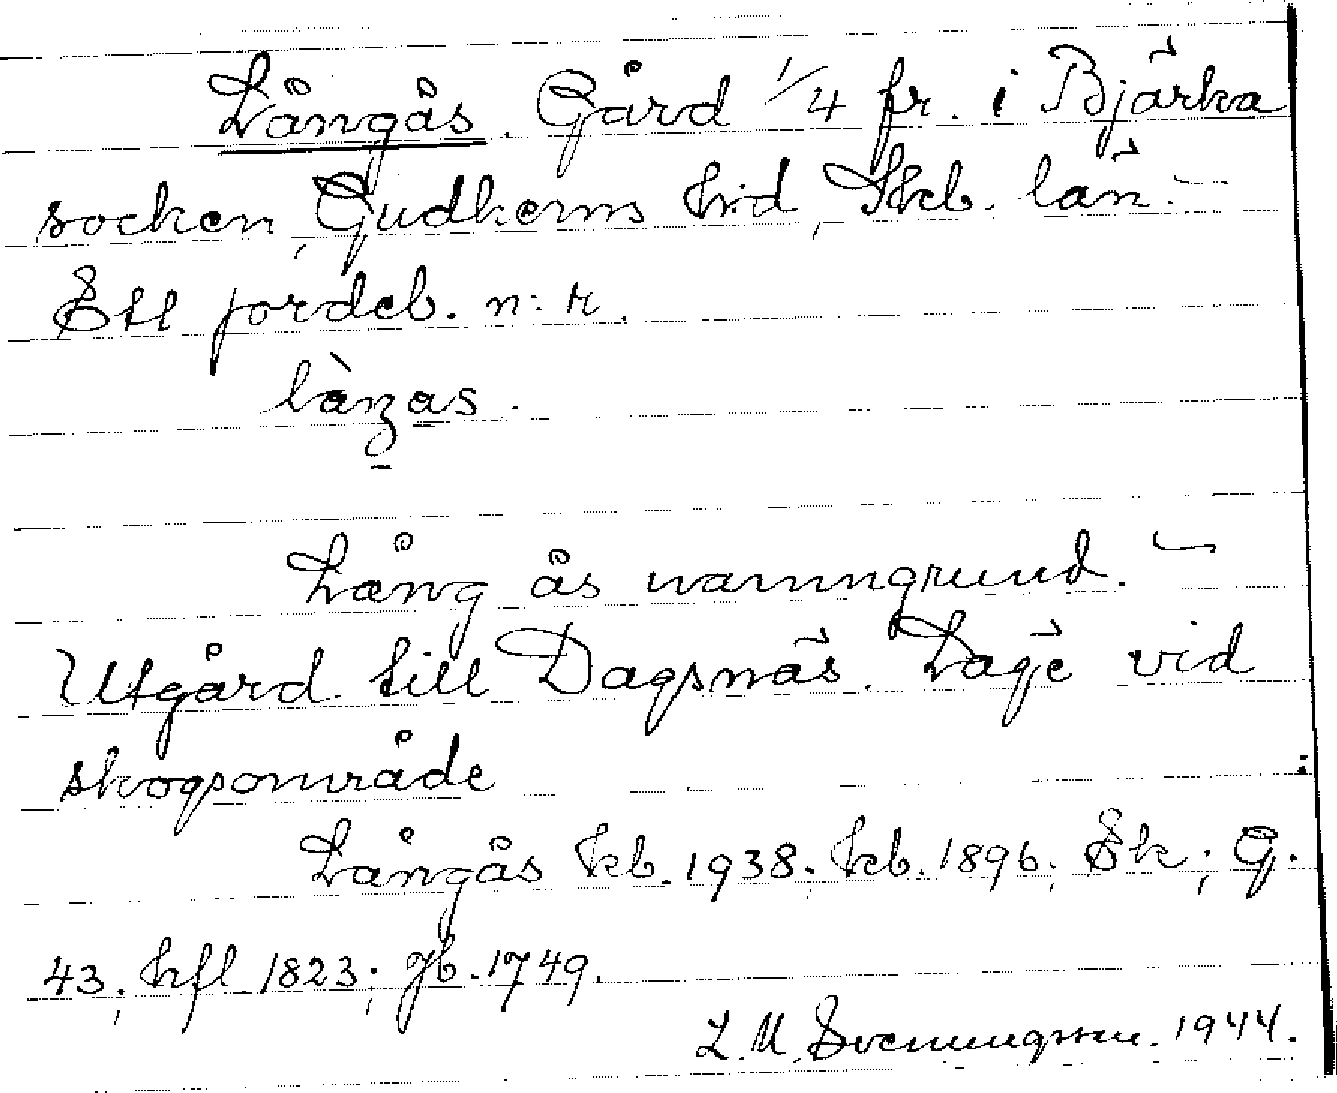 Långås. Gård 1/4 fr. i Bjärka
socken, Gudhems hrd, Skb. län.
Ett jordeb. n:r.
làŋas.
Lång ås namngrund.
Utgård till Dagsnäs. Läge vid
skogsområde
Långås kb. 1938; kb. 1896; Ek; G.
43; hfl 1823; jb. 1749.
L. M. Svenungsson. 1944.